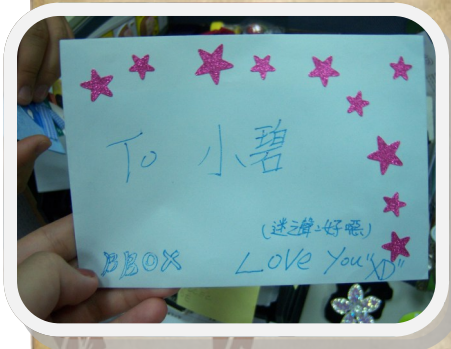 To 小碧
(迷之聲:好噁)
BBOX Love You"XD"